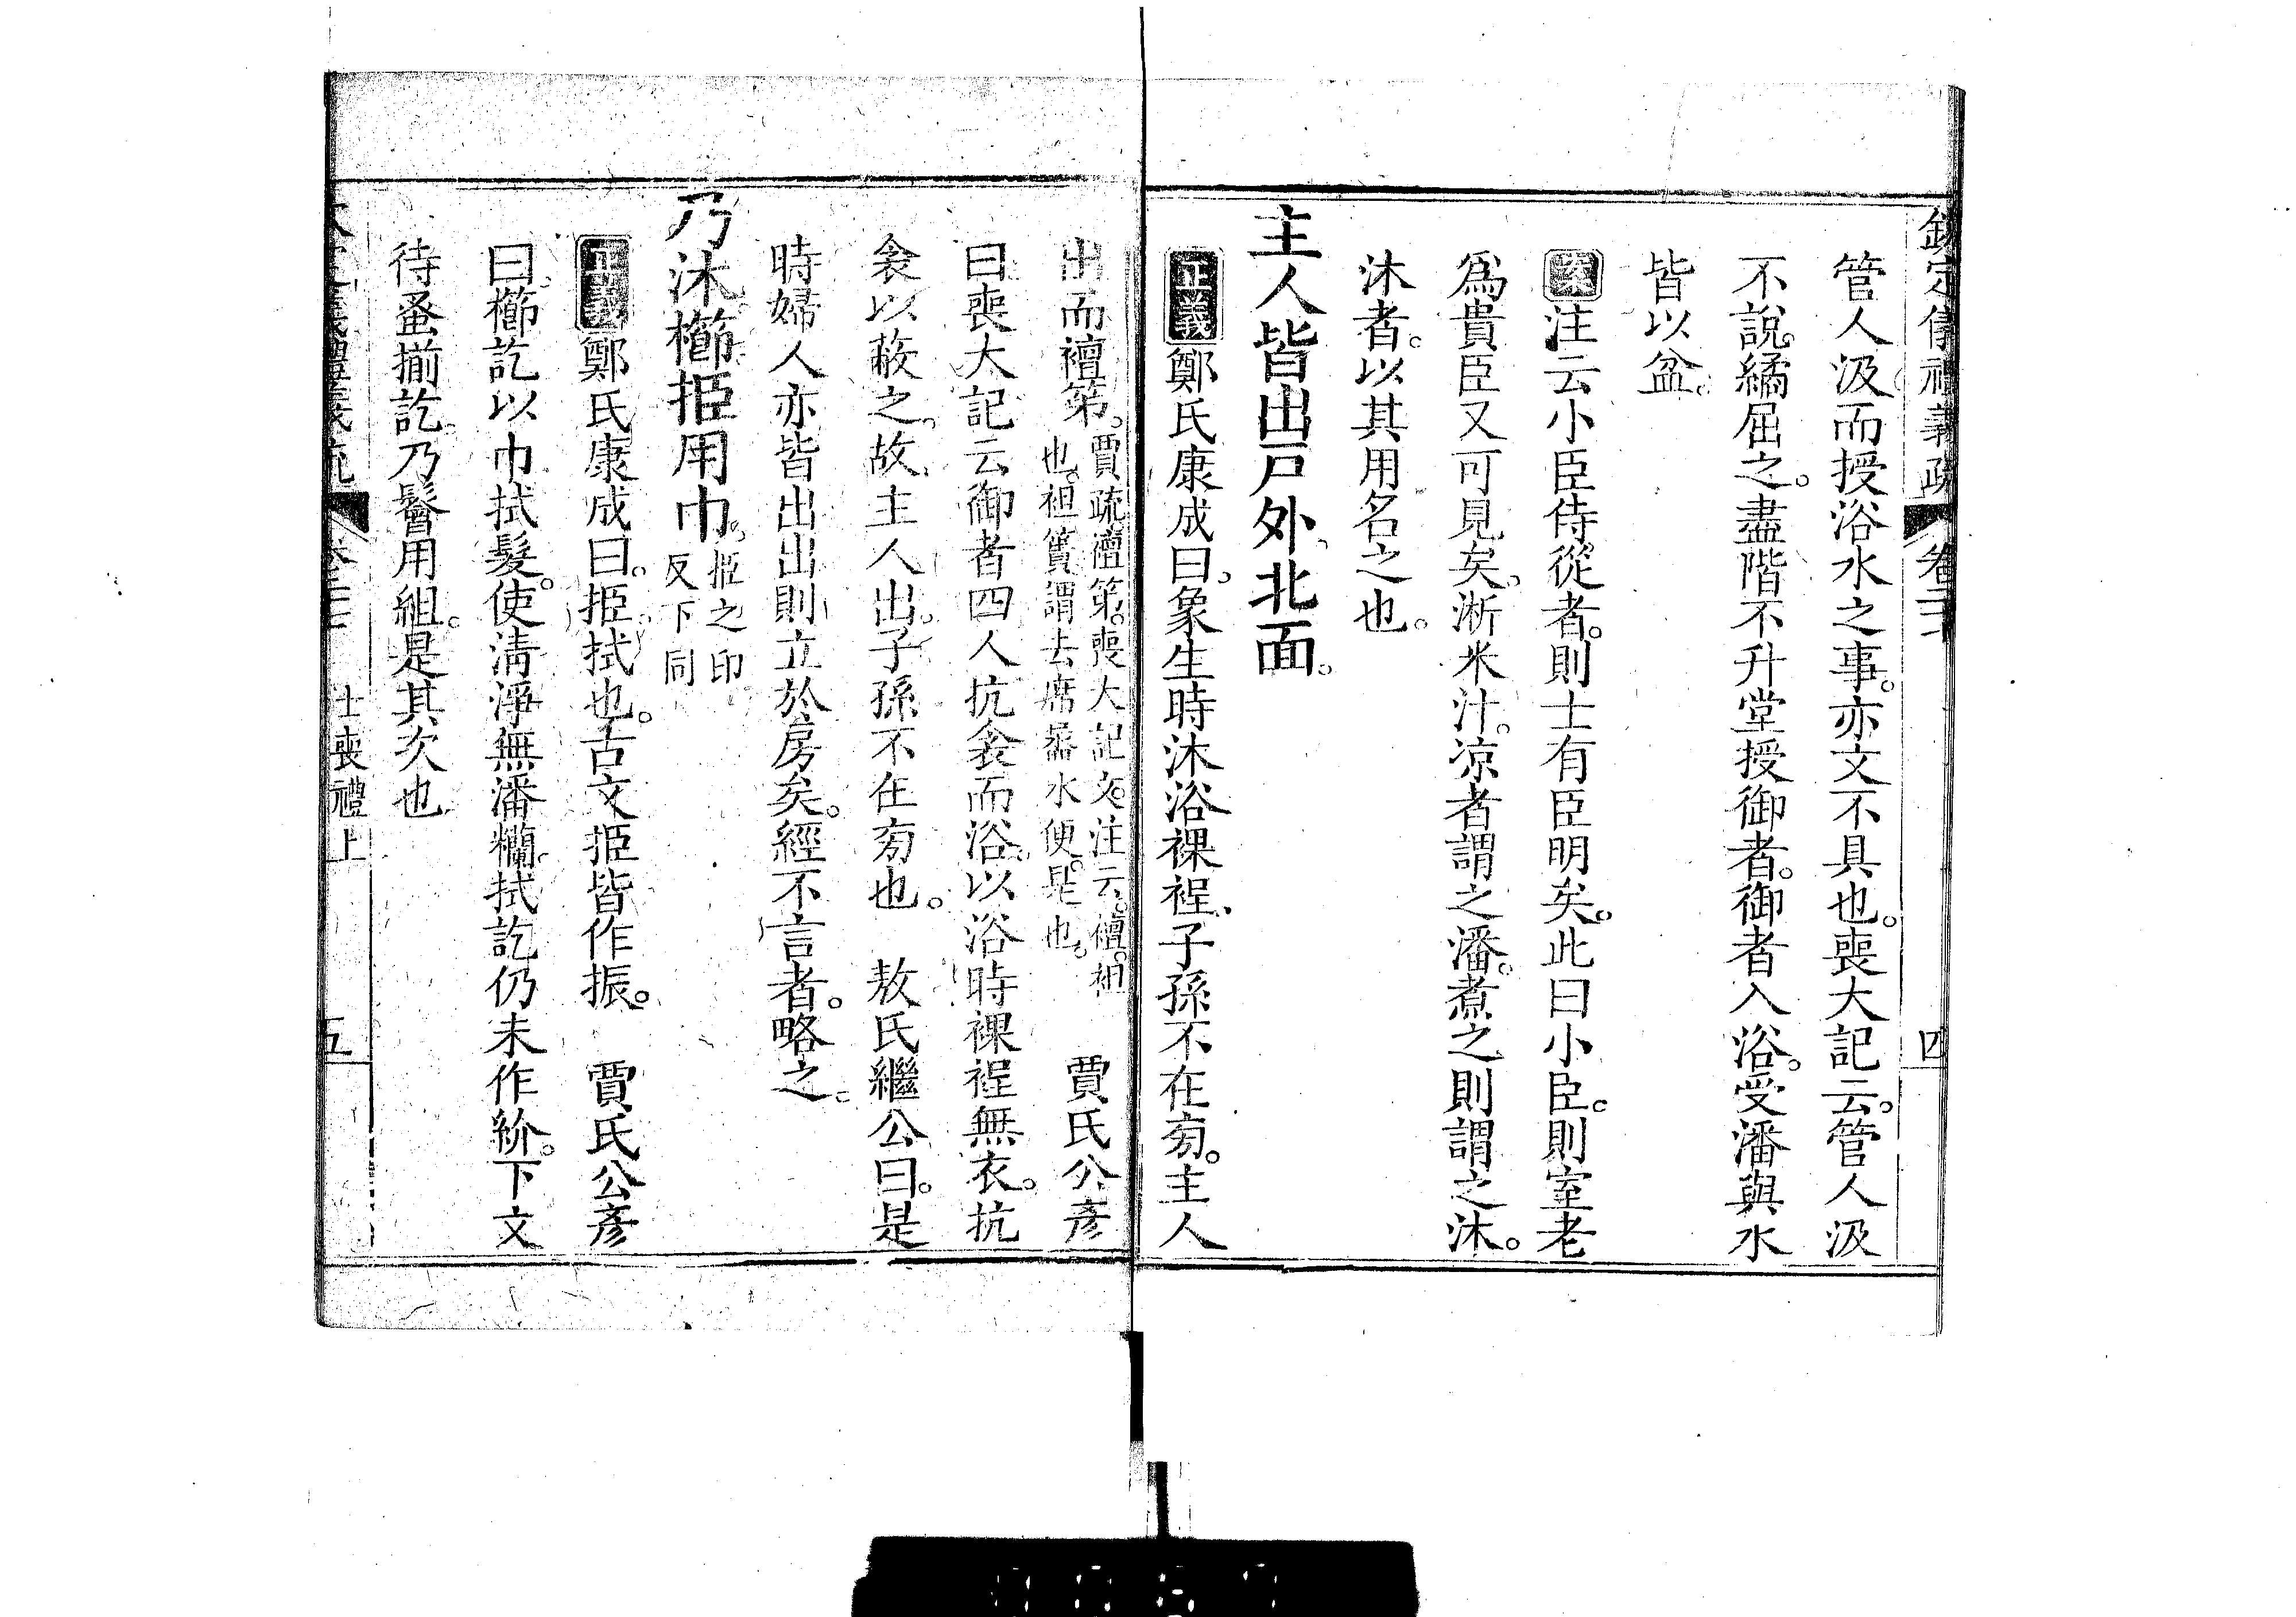 欽定儀禮義疏 卷二十 四
管人汲而授浴水之事。亦文不具也。喪大記云。管人汲
不說繘屈之。盡階不升堂授御者。御者入浴。受潘與水
皆以盆。
案注云小臣侍從者。則士有臣明矣。此曰小臣。則室老
爲貴臣又可見矣。淅米汁。凉者謂之潘。煮之則謂之沐。
沐者。以其用名之也。
主人皆出戶外、北面。
正義鄭氏康成曰。象生時沐浴裸裎、子孫不在旁。主人
出而襢第。賈疏。襢第。喪大記文。注云。襢。袒
也。袒簀謂去席。盝水便。是也。 賈氏公彥
曰喪大記云御者四人抗衾而浴。以浴時裸裎無衣。抗
衾以蔽之。故主人出。子孫不在旁也。 敖氏繼公曰。是
時婦人亦皆出出則立於房矣。經不言者。略之。
乃沐櫛挋用巾。挋之印
反下同
正義鄭氏康成曰。挋拭也。古文挋皆作振。 賈氏公彥
曰。櫛訖以巾拭髮。使淸淨無潘糷。拭訖仍未作紒。下文
待蚤揃訖。乃鬠用組。是其次也
士喪禮上 五